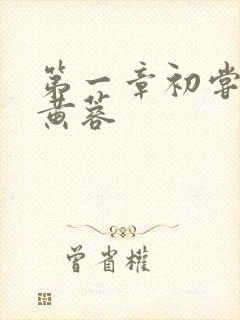 第一章初尝
黄蓉
曾省權